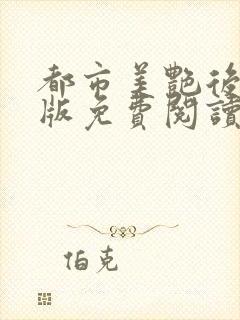 都市美艷後
版免費閱讀
伯克